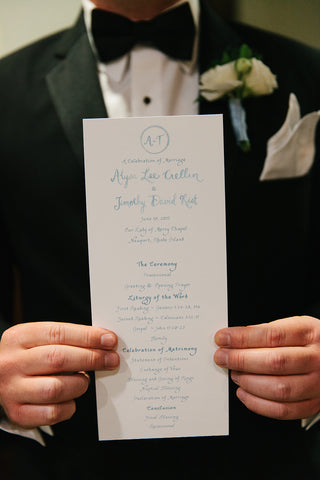 A·T
A Celebration of Marriage
Alyse Lee Crellin
&
Timothy David Rist
June 19,
Our Lady of Mercy Chapel
Newport, Rhode Island
The Ceremony
Processional
Greeting & Opening Prayer
Liturgy of the Word
First Reading - Genesis
Second Reading - Colossians
Gospel - John
Homily
Celebration of Matrimony
Statement of Intentions
Exchange of Vows
Blessing and Giving of Rings
Nuptial Blessing
Declaration of Marriage
Conclusion
Final Blessing
Recessional